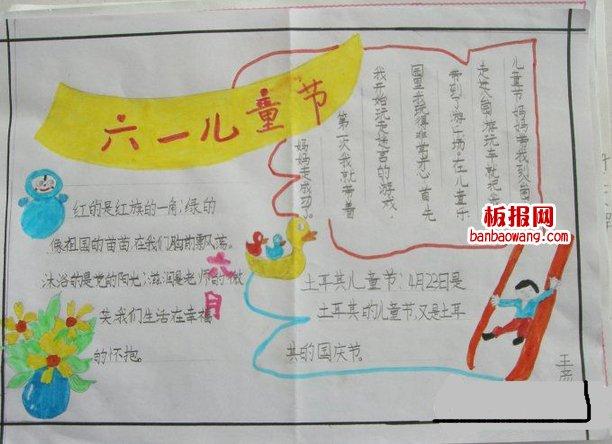 六一儿童节
红的是红旗的一角,绿的
像祖国的苗苗.在我们胸前飘荡。
沐浴的是党的阳光,滋润是老师的微
笑我们生活在幸福
的怀抱。
六月
儿童节妈妈带我到
走进
带到了游
场在儿童乐
园里我玩得非常开心.首先
我开始玩走迷宫的游戏,
第一次我就带着
妈妈走成功了。
板报网
banbaowang.com
土耳其儿童节:4月23日是
土耳其的儿童节,又是土耳
其的国庆节。
王